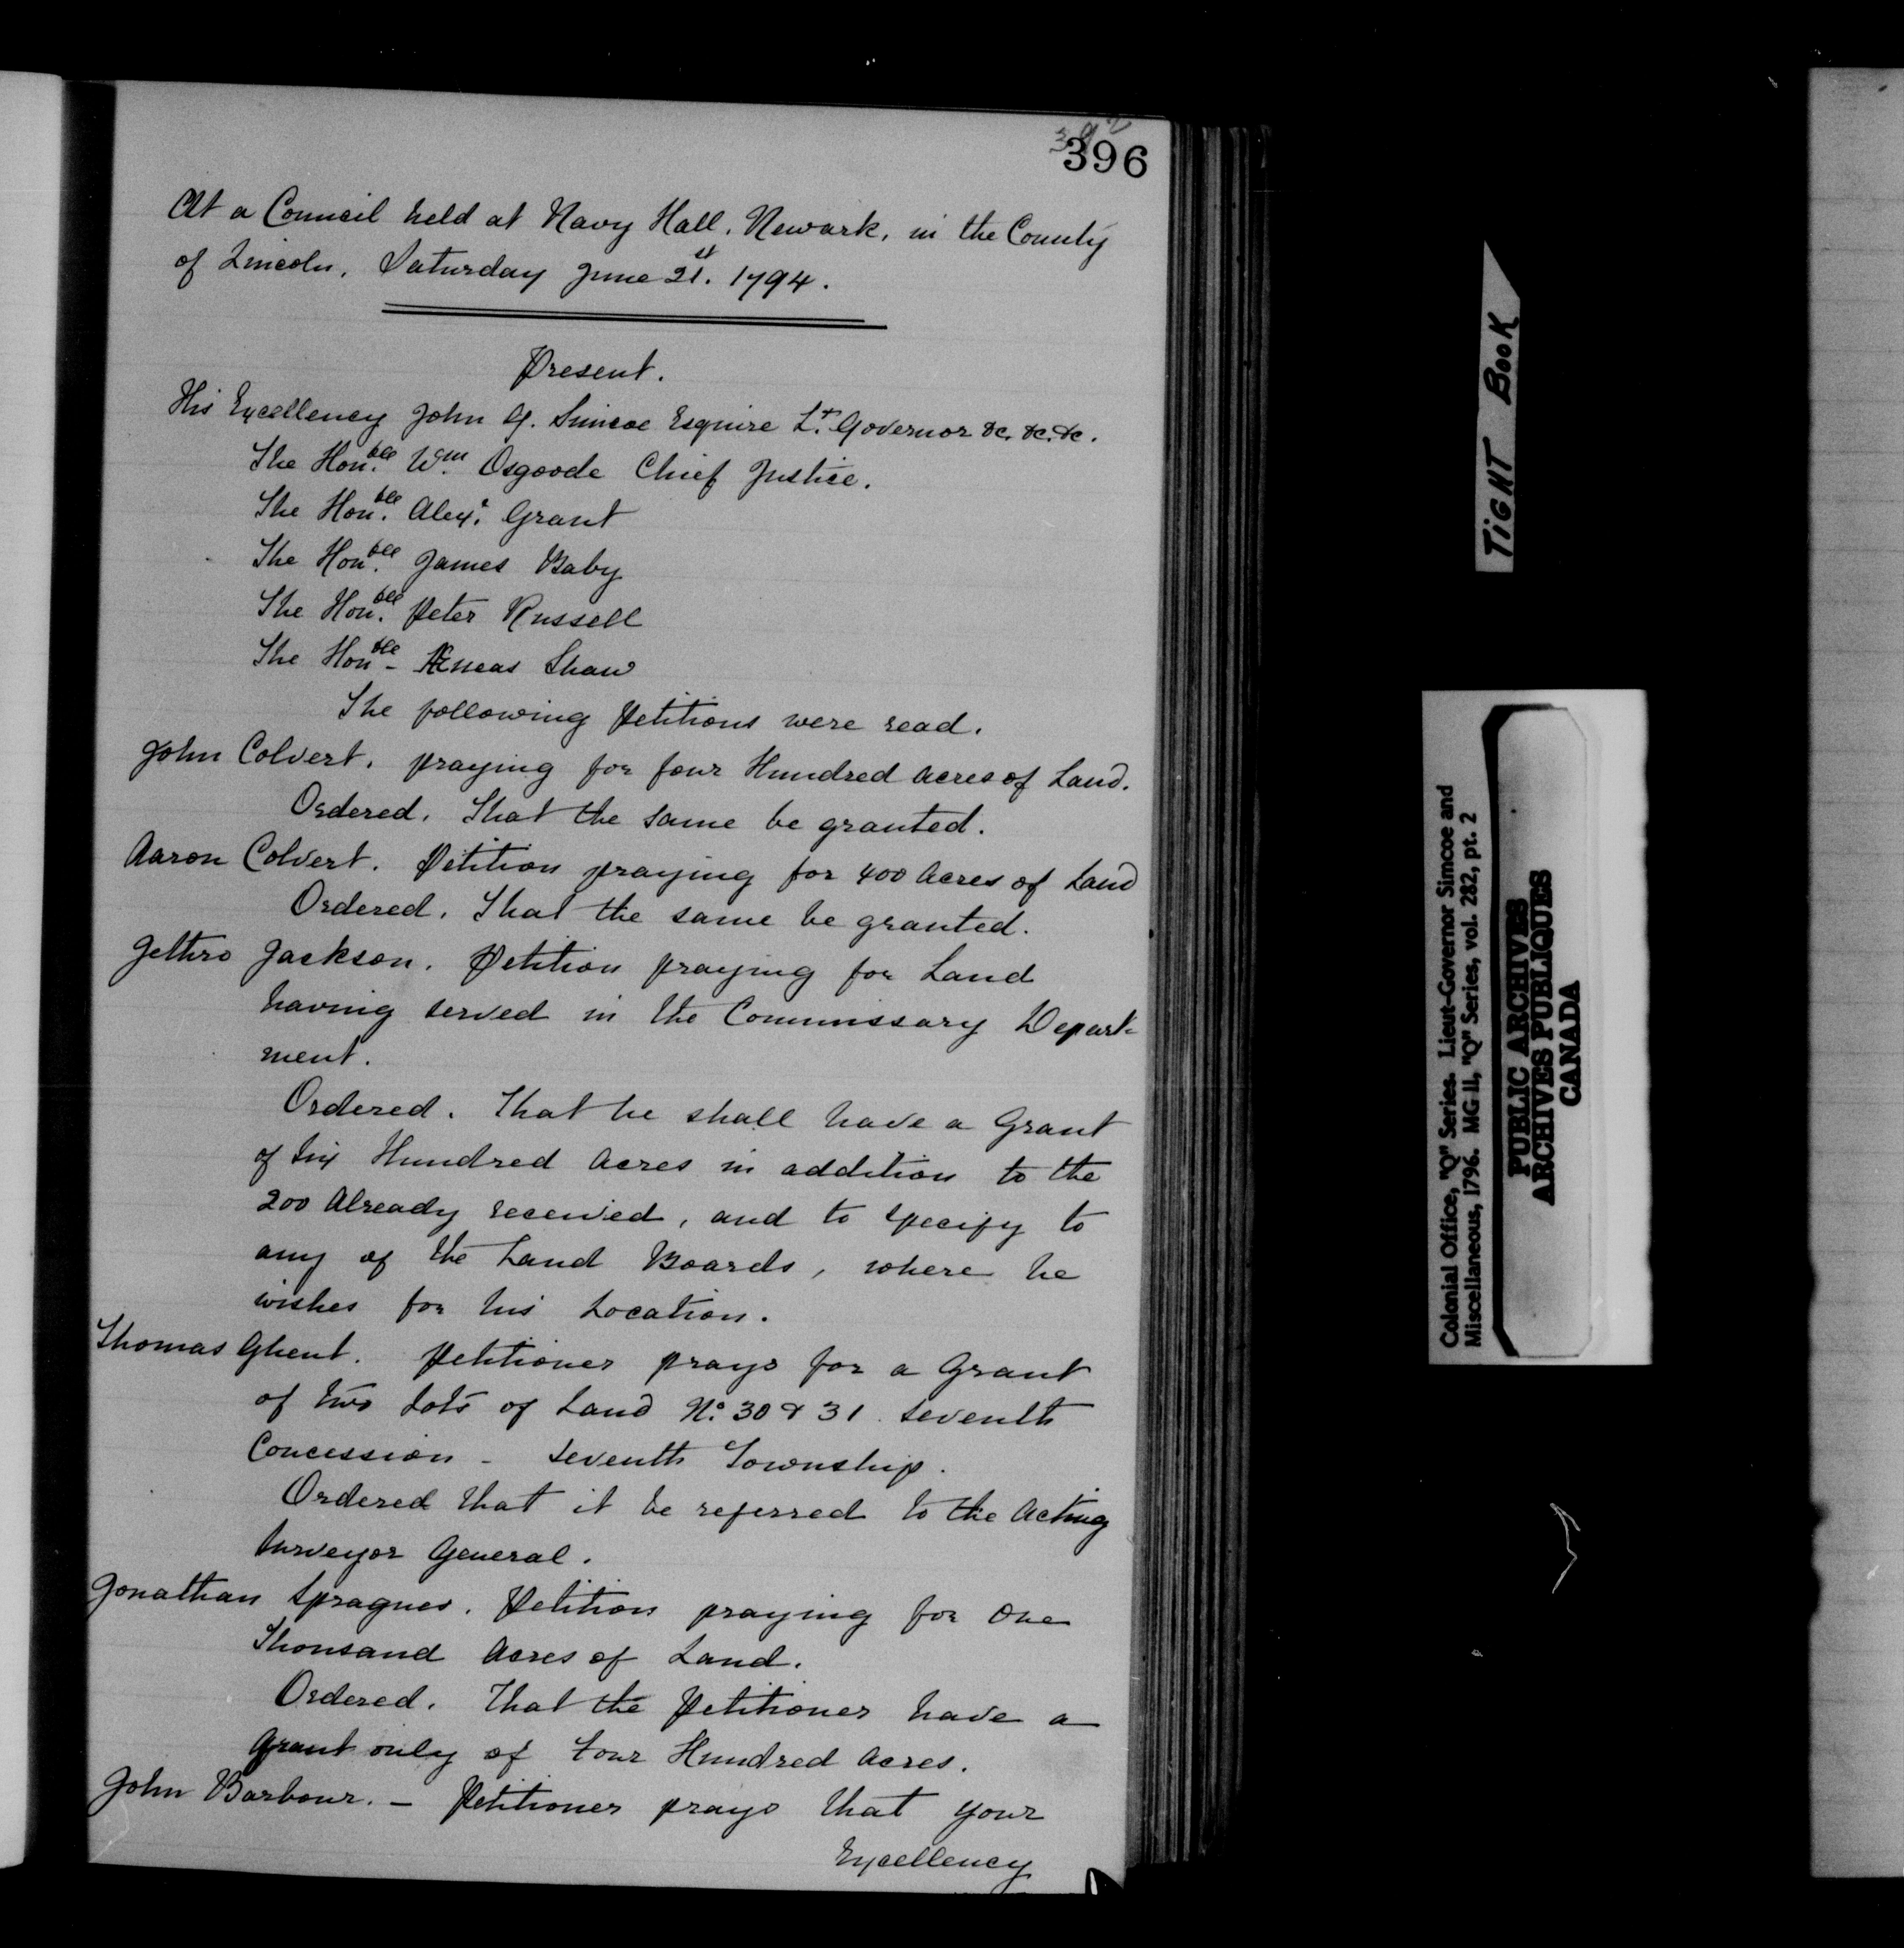 392
396
At a Council held at Navy Hall, Newark, in the County
of Lincoln, Saturday June 21st. 1794.
Present.
His Excellency John G. Simcoe Esquire Lt. Governor &c. &c. &c.
The Honble. Wm. Osgoode Chief Justice.
The Honble. Alexr. Grant
The Honble. James Baby
The Honble. Peter Russell
The Honble - Æneas Shaw
The following Petitions were read.
John Colvert, praying for four Hundred Acres of Land.
Ordered, That the same be granted.
Aaron Colvert. Petition praying for 400 Acres of Land
Ordered, That the same be granted.
Jethro Jackson. Petition praying for Land
having served in the Commissary Depart-
ment.
Ordered. That he shall have a Grant
of Six Hundred Acres in addition to the
200 Already received, and to specify to
any of the Land Boards, where he
wishes for his Location.
Thomas Ghent. Petitioner prays for a Grant
of two Lots of Land No. 30 & 31. Seventh
Concession - Seventh Township.
Ordered that it be referred to the Acting
Surveyor General.
Jonathan Spragues. Petition praying for One
Thousand Acres of Land.
Ordered. That the Petitioner have a
Grant only of Four Hundred Acres.
John Barbour. - Petitioner prays that your
Excellency
TIGHT BOOK
Colonial Office, "Q" Series. Lieut-Governor Simcoe and
Miscellaneous, 1796. MG-11, "Q" Series, vol. 282, pt. 2
PUBLIC ARCHIVES
ARCHIVES PUBLIQUES
CANADA